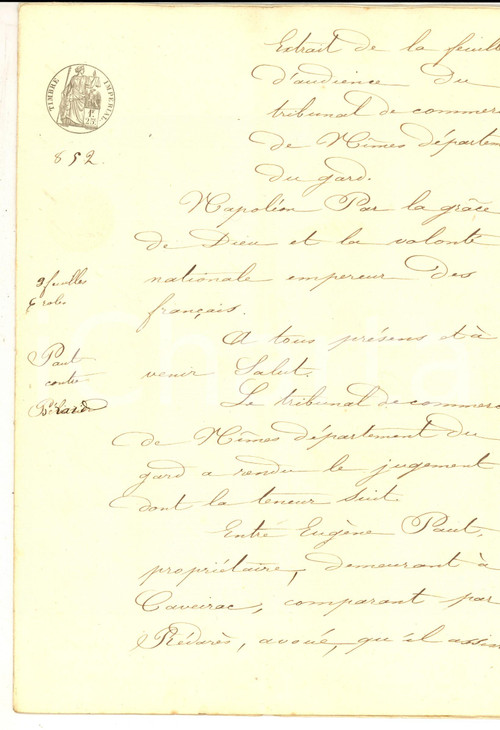 Extrait de la feuille
d'audience du
tribunal de commerc
de Nîmes départem
du gard.
TIMBRE IMPERIAL
852.
Napoléon Par la grâce
de Dieu et la volonté
nationale empereur des
français.
9 feuilles
A tous présens et à
venir Salut.
Paut
contre
Bérard
Le tribunal de commerc
de Nîmes département du
gard a rendu le jugement
dont la teneur suit.
Entre Eugène Paut,
propriétaire, demeurant à
Caveirac, comparant par
Rédarès, avoué, qu'il assis